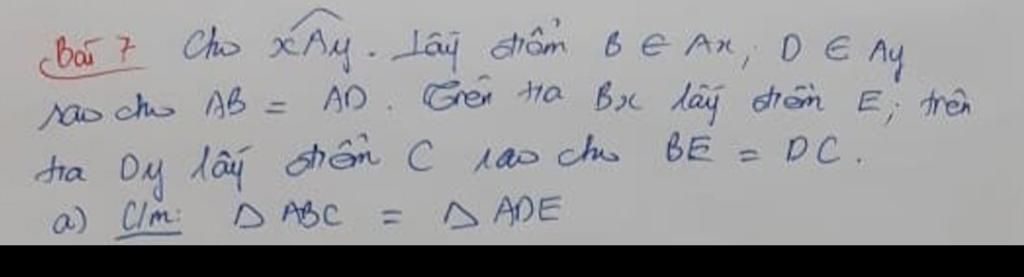 Bài 7 Cho xAy. Lấy điểm B ∈ Ax, D ∈ Ay
sao cho AB = AD. Trên tia Bx lấy điểm E, trên
tia Dy lấy điểm C sao cho BE = DC.
a) C/m: Δ ABC = Δ ADE